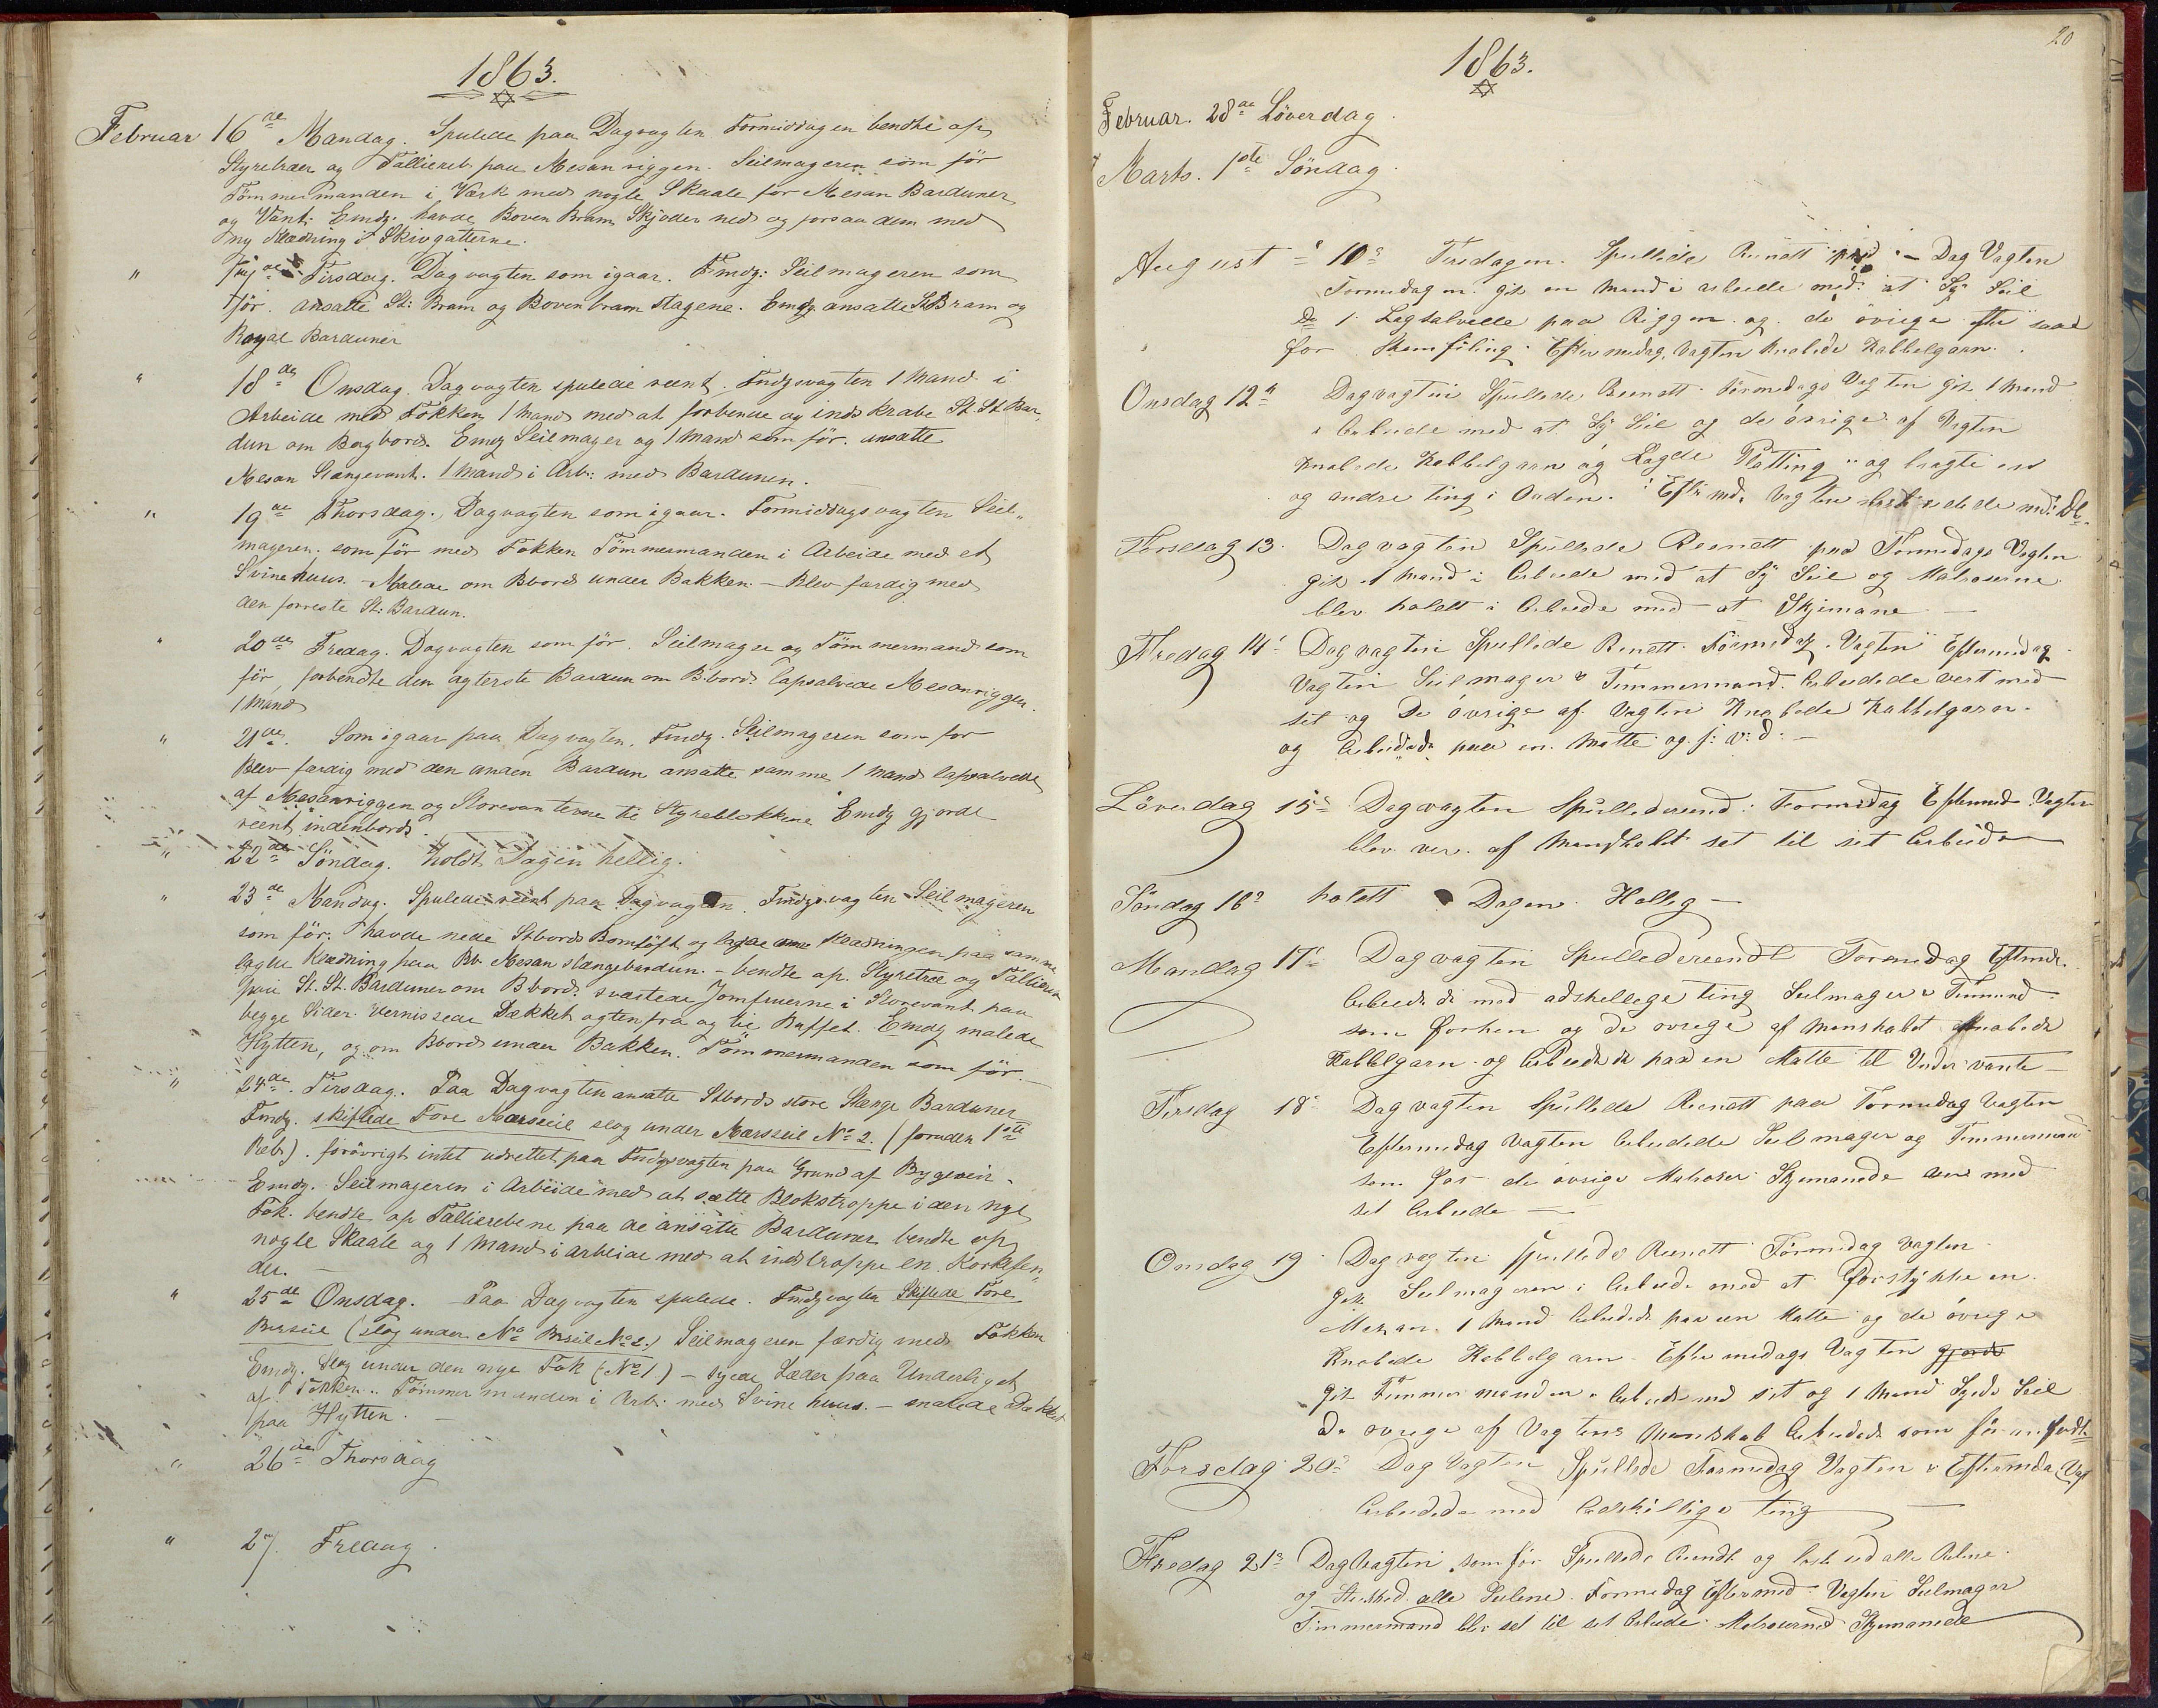 1863.
Februar 16de Mandag. Spulede paa Dagvagten Formiddagen bendte op
Styretræer og Tallieret paa Mesan riggen. Seilmageren som för
Tömmermanden i Værk med nogle Skaale for Mesan Barduner
og Vant. Emdg. havde Boven Bram Skjöder ned og forsaa dem med
ny Klædning i Skivgatterne.
" 17de Tirsdag. Dagvagten som igaar. Fmdg: Seilmageren som
för. ansatte St: Bram og Boven bram stagene. Emdg ansatte St Bram og
Royal Barduner
" 18de Onsdag. Dagvagten spulede reent. Fmdgsvagten 1 Mand i
Arbeide med Fokken 1 Mand med at forbende og indskrabe St. St. Bar-
dun om Bagbord. Emdg Seilmager og 1 Mand som för. ansatte
Mesan Stængevant. 1 Mand i Arb: med Bardunen.
" 19de Thorsdag. Dagvagten som igaar. Formiddagsvagten Seil-
mageren som för med Fokken Tömmermanden i Arbeide med et
Svinehuus. - Malede om Bbord under Bakken. - Blev færdig med
den forreste St: Bardun.
" 20de Fredag. Dagvagten som för. Seilmager og Tömmermand som
för, forbendte den agterste Bardun om B.bord. lapsalvede Mesanriggen
1 Mand
" 21de. Som igaar paa Dagvagten. Fmdg. Seilmageren som for
Blev færdig med den anden Bardun ansatte samme 1 Mand lapsalvede
af Mesanriggen og Storevanterne til Styreblokkene Emdg gjorde
reent indenbords.
" 22de Söndag. Holdt Dagen hellig.
" 23de Mandag. Spulede reent paa Dagvagten. Fmdgsvagten Seilmageren
som för. havde nede Stbords Bomtöft og lagde Klædningen paa samme
lagde Klædning paa Bb. Mesan stængebardun. - bendte op. Styretræ og Tallieret
paa St. St. Barduner om B bord. sværtede Jomfruerne i Storevant paa
begge Sider. Vernissede Dækket agtenfra og til Raffet. Emdg malede
Hytten, og om Bbord under Bakken. Tömmermanden som för.
" 24de. Tirsdag. Paa Dagvagten ansatte Stbords store Stænge Barduner
Fmdg. skiftede Fore Mærsseil slog under Mærsseil No 2. (foruden 1ste
Reb). forövrigt intet udrettet paa Fmdgsvagten paa Grund af Bygeveir.
Emdg. Seilmageren i Arbeide med at sætte Blokstroppe i den nye
Fok. bendte op Tallierebene paa de ansatte Barduner bendte op
nogle Skaale og 1 Mand i arbeide med at indstroppe en Korkfen-
der.
" 25de Onsdag. Paa Dagvagten spulede. Fmdgvagten Skiftede Fore
Brseil (slog under No Brseil No 2.) Seilmageren færdig med Fokken
Emdg. Slog under den nye Fok (No 1.) - syede Læder paa Underliget
af Fokken. Tömmermanden i Arb. med Svine huus. - malede Dækket
paa Hytten.
" 26de Thorsdag
" 27. Fredag.
20
1863.
Februar. 28de Löverdag.
Marts. 1ste Söndag.
August 10de Tirsdagen. Spullede Reenett paa Dag Vagten
Formedagen gik en Mand i arbeide med at Sy Seil
1 Lagsalvelle paa Riggen og de övrige
for Skamfiling. Eftermedag, Vagten Knobede Kabbelgarn.
Onsdag 12te Dagvagten Spullede Reenett. Formedags Vagten gik 1 Mand
i Arbeide med at Sy Seil og de övrige af Vagten
Knobede Kabbelgarn og Lagde Platting og bragte
og andre ting i Orden. Eftermd. Vagten med
Torsdag 13. Dagvagten Spullede Reenett paa Formedags Vagten
gik 1 Mand i Arbeide med at Sy Seil og Matroserne
blev holdtt i Arbeide med at Skjemane
Fredag 14 Dagvagten Spullede Reenett. Formedag. Vagten Eftermedag
Vagten Seilmager & Timmermand Arbeidede vert med
sit og De övrige af Vagten Knobede Kabbelgarn.
og Arbeidede paa en Matte og s: v: d: -
Löverdag 15de Dagvagten Spullede reend: Formedag Eftermed Vagten
blev ver af Mandskabet set til sit Arbeide
Söndag 16de holdtt Dagen Hellig -
Mandag 17de Dagvagten Spullede reendt Formedag Eftmd.
Arbeidede med adskellege ting Seilmager & Timmermand
som Forhen og de övrege af Manskabet Knobede
Kabbelgarn og Arbeidede paa en Matte til Under vante -
Tirsdag 18de Dagvagten Spullede Reenett paa Formedag Vagten
Eftermedag Vagten Arbeidede Seilmager og Timmermand
som för de övrige Matroser Skjemanede med
sit Arbeide
Onsdag 19 Dagvagten Spullede Reenett Formedag Vagten
gik Seilmageren i Arbeide med at Forstykke en
Mesan. 1 Mand Arbeidede paa en Matte og de övrege
Knobede Kabbelgarn - Efter medags Vagten gjorde
gik Timmermanden i Arbeide med sit og 1 Mand Syede Seil
de övrege af Vagtens Mandskab Arbeidede som för
Torsdag 20de Dag Vagten Spullede Formedag Vagten & Eftermda. Vag
Arbeidede med Adskillige ting
Fredag 21de Dagvagten som för Spullede Reendt og
og alle Seilene. Formedag Eftermed Vagten Seilmager
Timmermand blev set til sit Arbeide. Matroserne Skjemanede